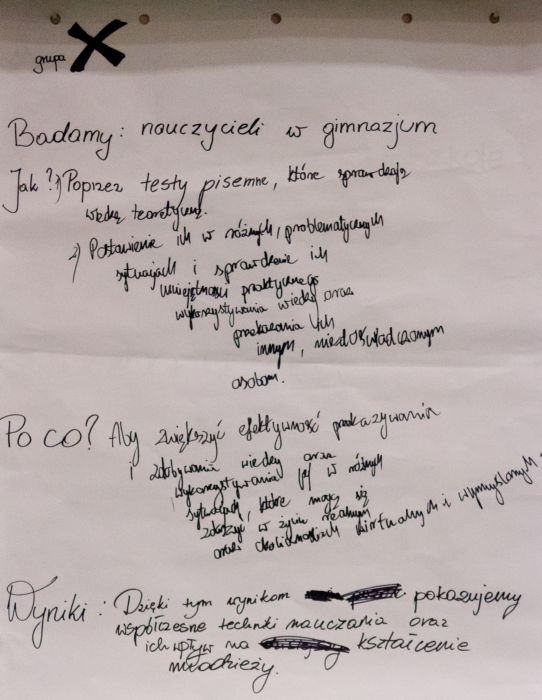 grupa X
Badamy: nauczycieli w gimnazjum
Jak? 1) Poprzez testy pisemne, które sprawdzają
wiedzę teoretyczną.
2) Postawienie ich w różnych, problematycznych
sytuacjach i sprawdzenie ich
umiejętności praktycznego
wykorzystywania wiedzy oraz
przekazania ich
innym, niedoświadczonym
osobom.
Po co? Aby zwiększyć efektywność przekazywania
i zdobywania wiedzy oraz
wykorzystywania jej w różnych
sytuacjach, które mogą się
zdarzyć w życiu realnym
oraz okolicznościach wirtualnych i wymyślonych.
Wyniki: Dzięki tym wynikom pokazujemy
współczesne techniki nauczania oraz
ich wpływ na kształcenie
młodzieży.